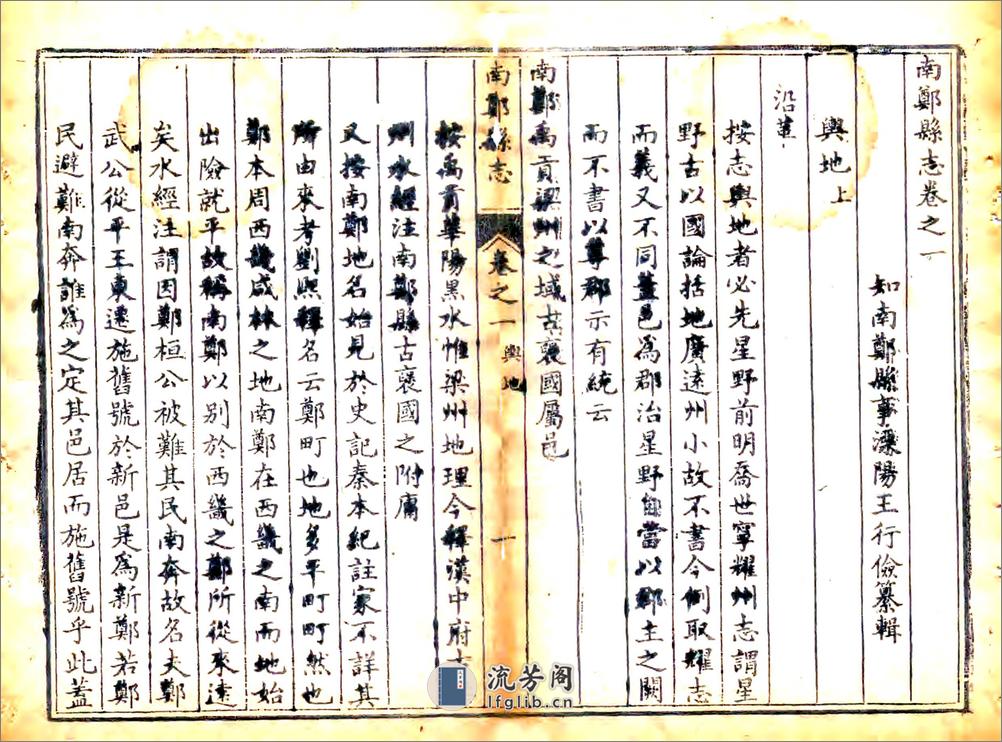 南鄭縣志卷之一
知南鄭縣事溧陽王行儉纂輯
輿地上
沿革
按志輿地者必先星野前明喬世寧耀州志謂星
野古以國論括地廣遠州小故不書今例取耀志
而義又不同蓋邑為郡治星野自當以郡主之闕
而不書以尊郡示有統云
南鄭禹貢梁州之域古襃國屬邑
南鄭縣志 卷之一 輿地 一
按禹貢華陽黑水惟梁州地理今釋漢中府
州水經注南鄭縣古襃國之附庸
又按南鄭地名始見於史記秦本紀註家不詳其
所由來考劉熙釋名云鄭町也地多平町町然也
鄭本周西畿咸林之地南鄭在西畿之南而地始
出險就平故稱南鄭以別於西畿之鄭所從來遠
矣水經注謂因鄭桓公被難其民南奔故名夫鄭
武公從平王東遷施舊號於新邑是為新鄭若鄭
民避難南奔誰為之定其邑居而施舊號乎此蓋
流芳阁
lfglib.cn